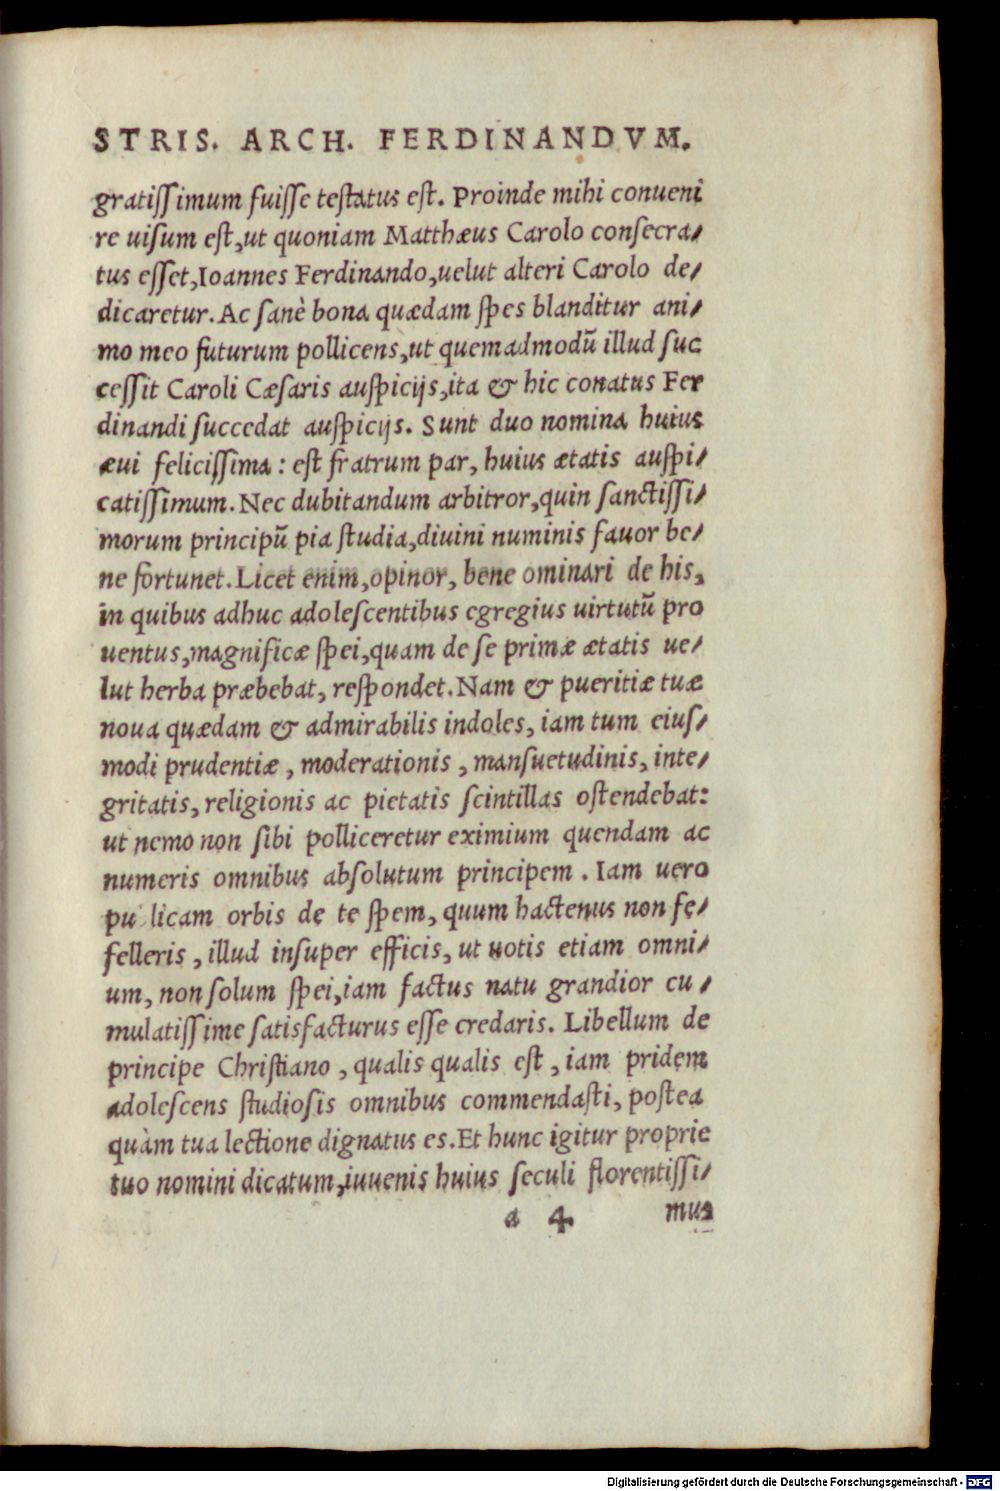 STRIS. ARCH. FERDINANDVM.
gratiſſimum fuiſſe teſtatus eſt. Proinde mihi conueni
re uiſum eſt, ut quoniam Matthæus Carolo conſecra⸗
tus eſſet, Ioannes Ferdinando, uelut alteri Carolo de⸗
dicaretur. Ac ſanè bona quædam ſpes blanditur ani⸗
mo meo futurum pollicens, ut quemadmodū illud ſuc
ceſſit Caroli Cæſaris auſpicijs, ita & hic conatus Fer
dinandi ſuccedat auſpicijs. Sunt duo nomina huius
æui feliciſſima: eſt fratrum par, huius ætatis auſpi⸗
catiſſimum. Nec dubitandum arbitror, quin ſanctiſſi⸗
morum principū pia ſtudia, diuini numinis fauor be⸗
ne fortunet. Licet enim, opinor, bene ominari de his,
in quibus adhuc adoleſcentibus egregius uirtutū pro
uentus, magnificæ ſpei, quam de ſe primæ ætatis ue⸗
lut herba præbebat, reſpondet. Nam & pueritiæ tuæ
noua quædam & admirabilis indoles, iam tum eiuſ⸗
modi prudentiæ, moderationis, manſuetudinis, inte⸗
gritatis, religionis ac pietatis ſcintillas oſtendebat:
ut nemo non ſibi polliceretur eximium quendam ac
numeris omnibus abſolutum principem. Iam uero
pu licam orbis de te ſpem, quum hactenus non fe⸗
felleris, illud inſuper efficis, ut uotis etiam omni⸗
um, non ſolum ſpei, iam factus natu grandior cu⸗
mulatiſſime ſatisfacturus eſſe credaris. Libellum de
principe Chriſtiano, qualis qualis eſt, iam pridem
adoleſcens ſtudioſis omnibus commendaſti, poſtea
quàm tua lectione dignatus es. Et hunc igitur proprie
tuo nomini dicatum, iuuenis huius ſeculi florentiſſi⸗
a 4 mus
Digitalisierung gefördert durch die Deutsche Forschungsgemeinschaft - DFG